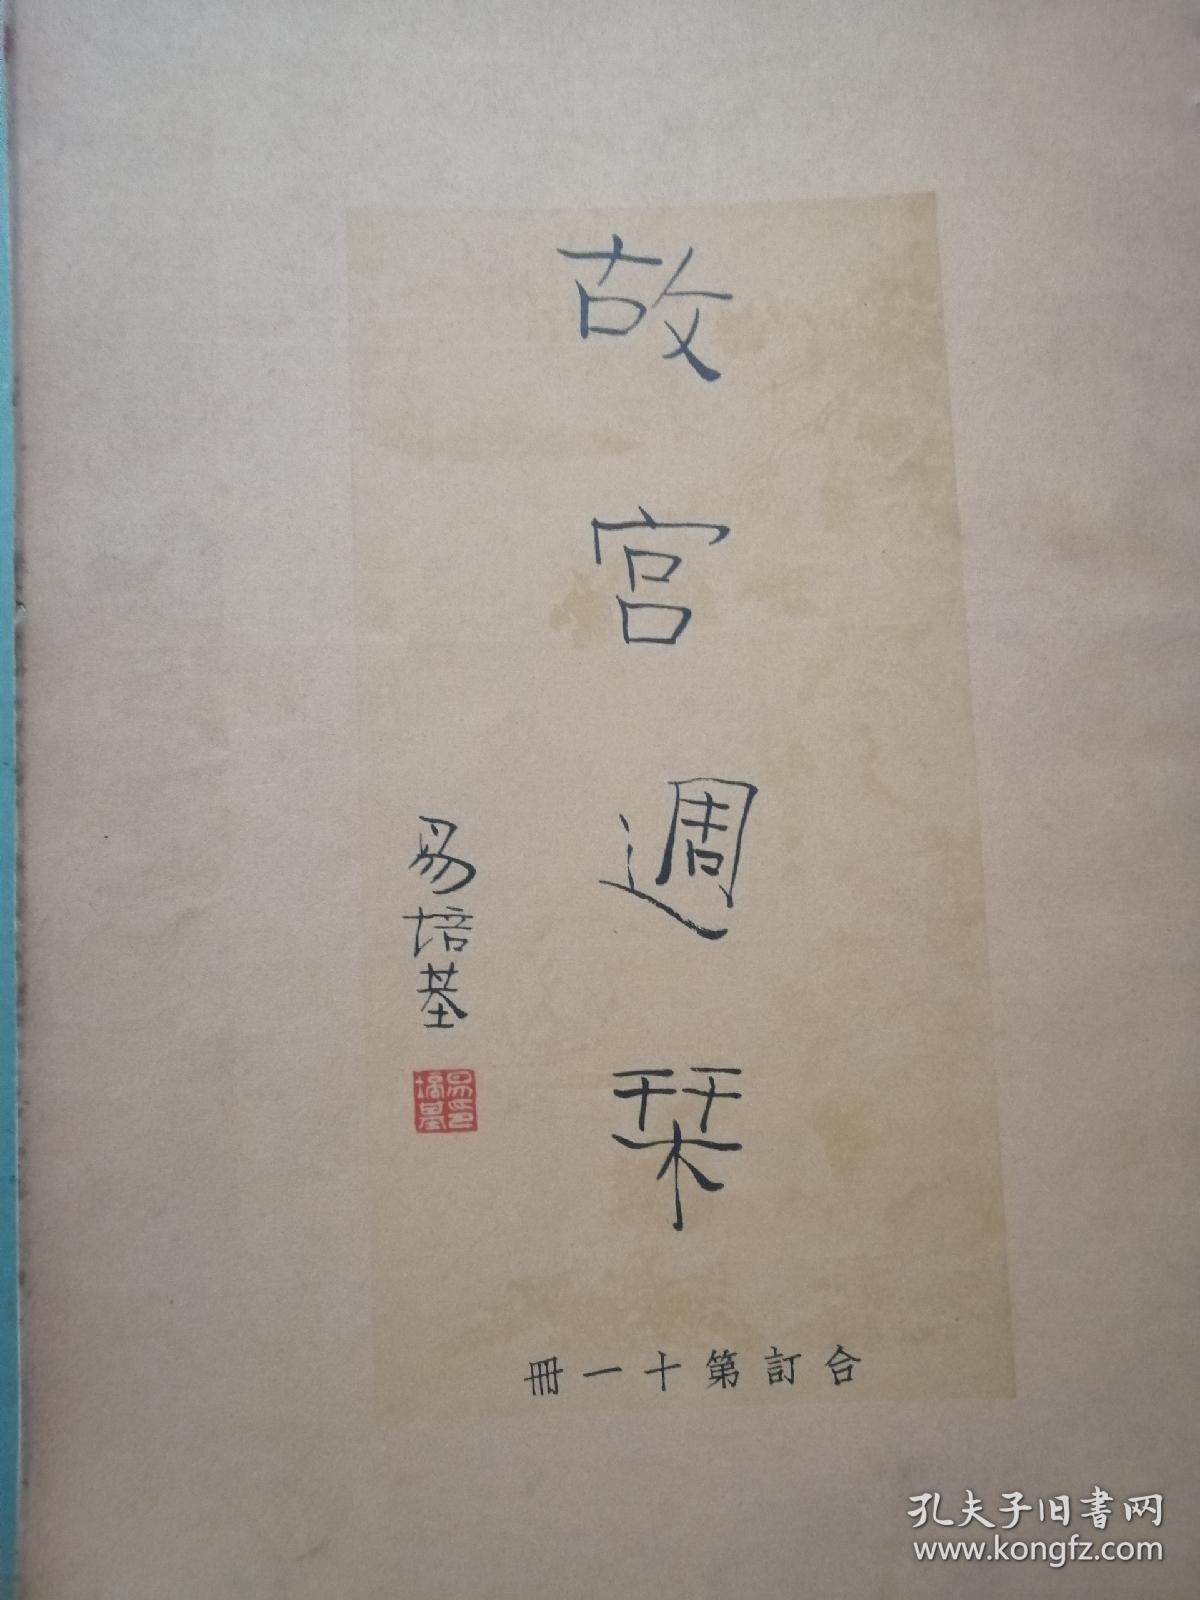 故宮週栞
易培基
易培基印
合訂第十一冊
孔夫子旧书网
www.kongfz.com